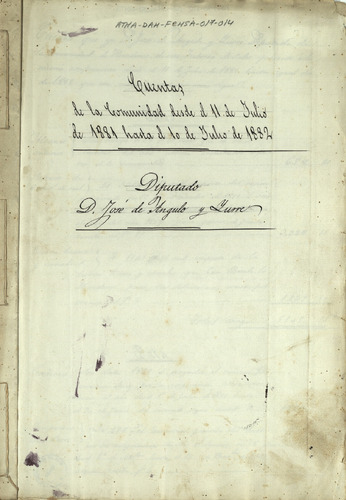 ATHA-DAH-FEHSA-019-014
Cuentas
de la Comunidad desde el 11 de Julio
de 1881 hasta el 10 de Julio de 1882
Diputado
D. José de Angulo y Yurre